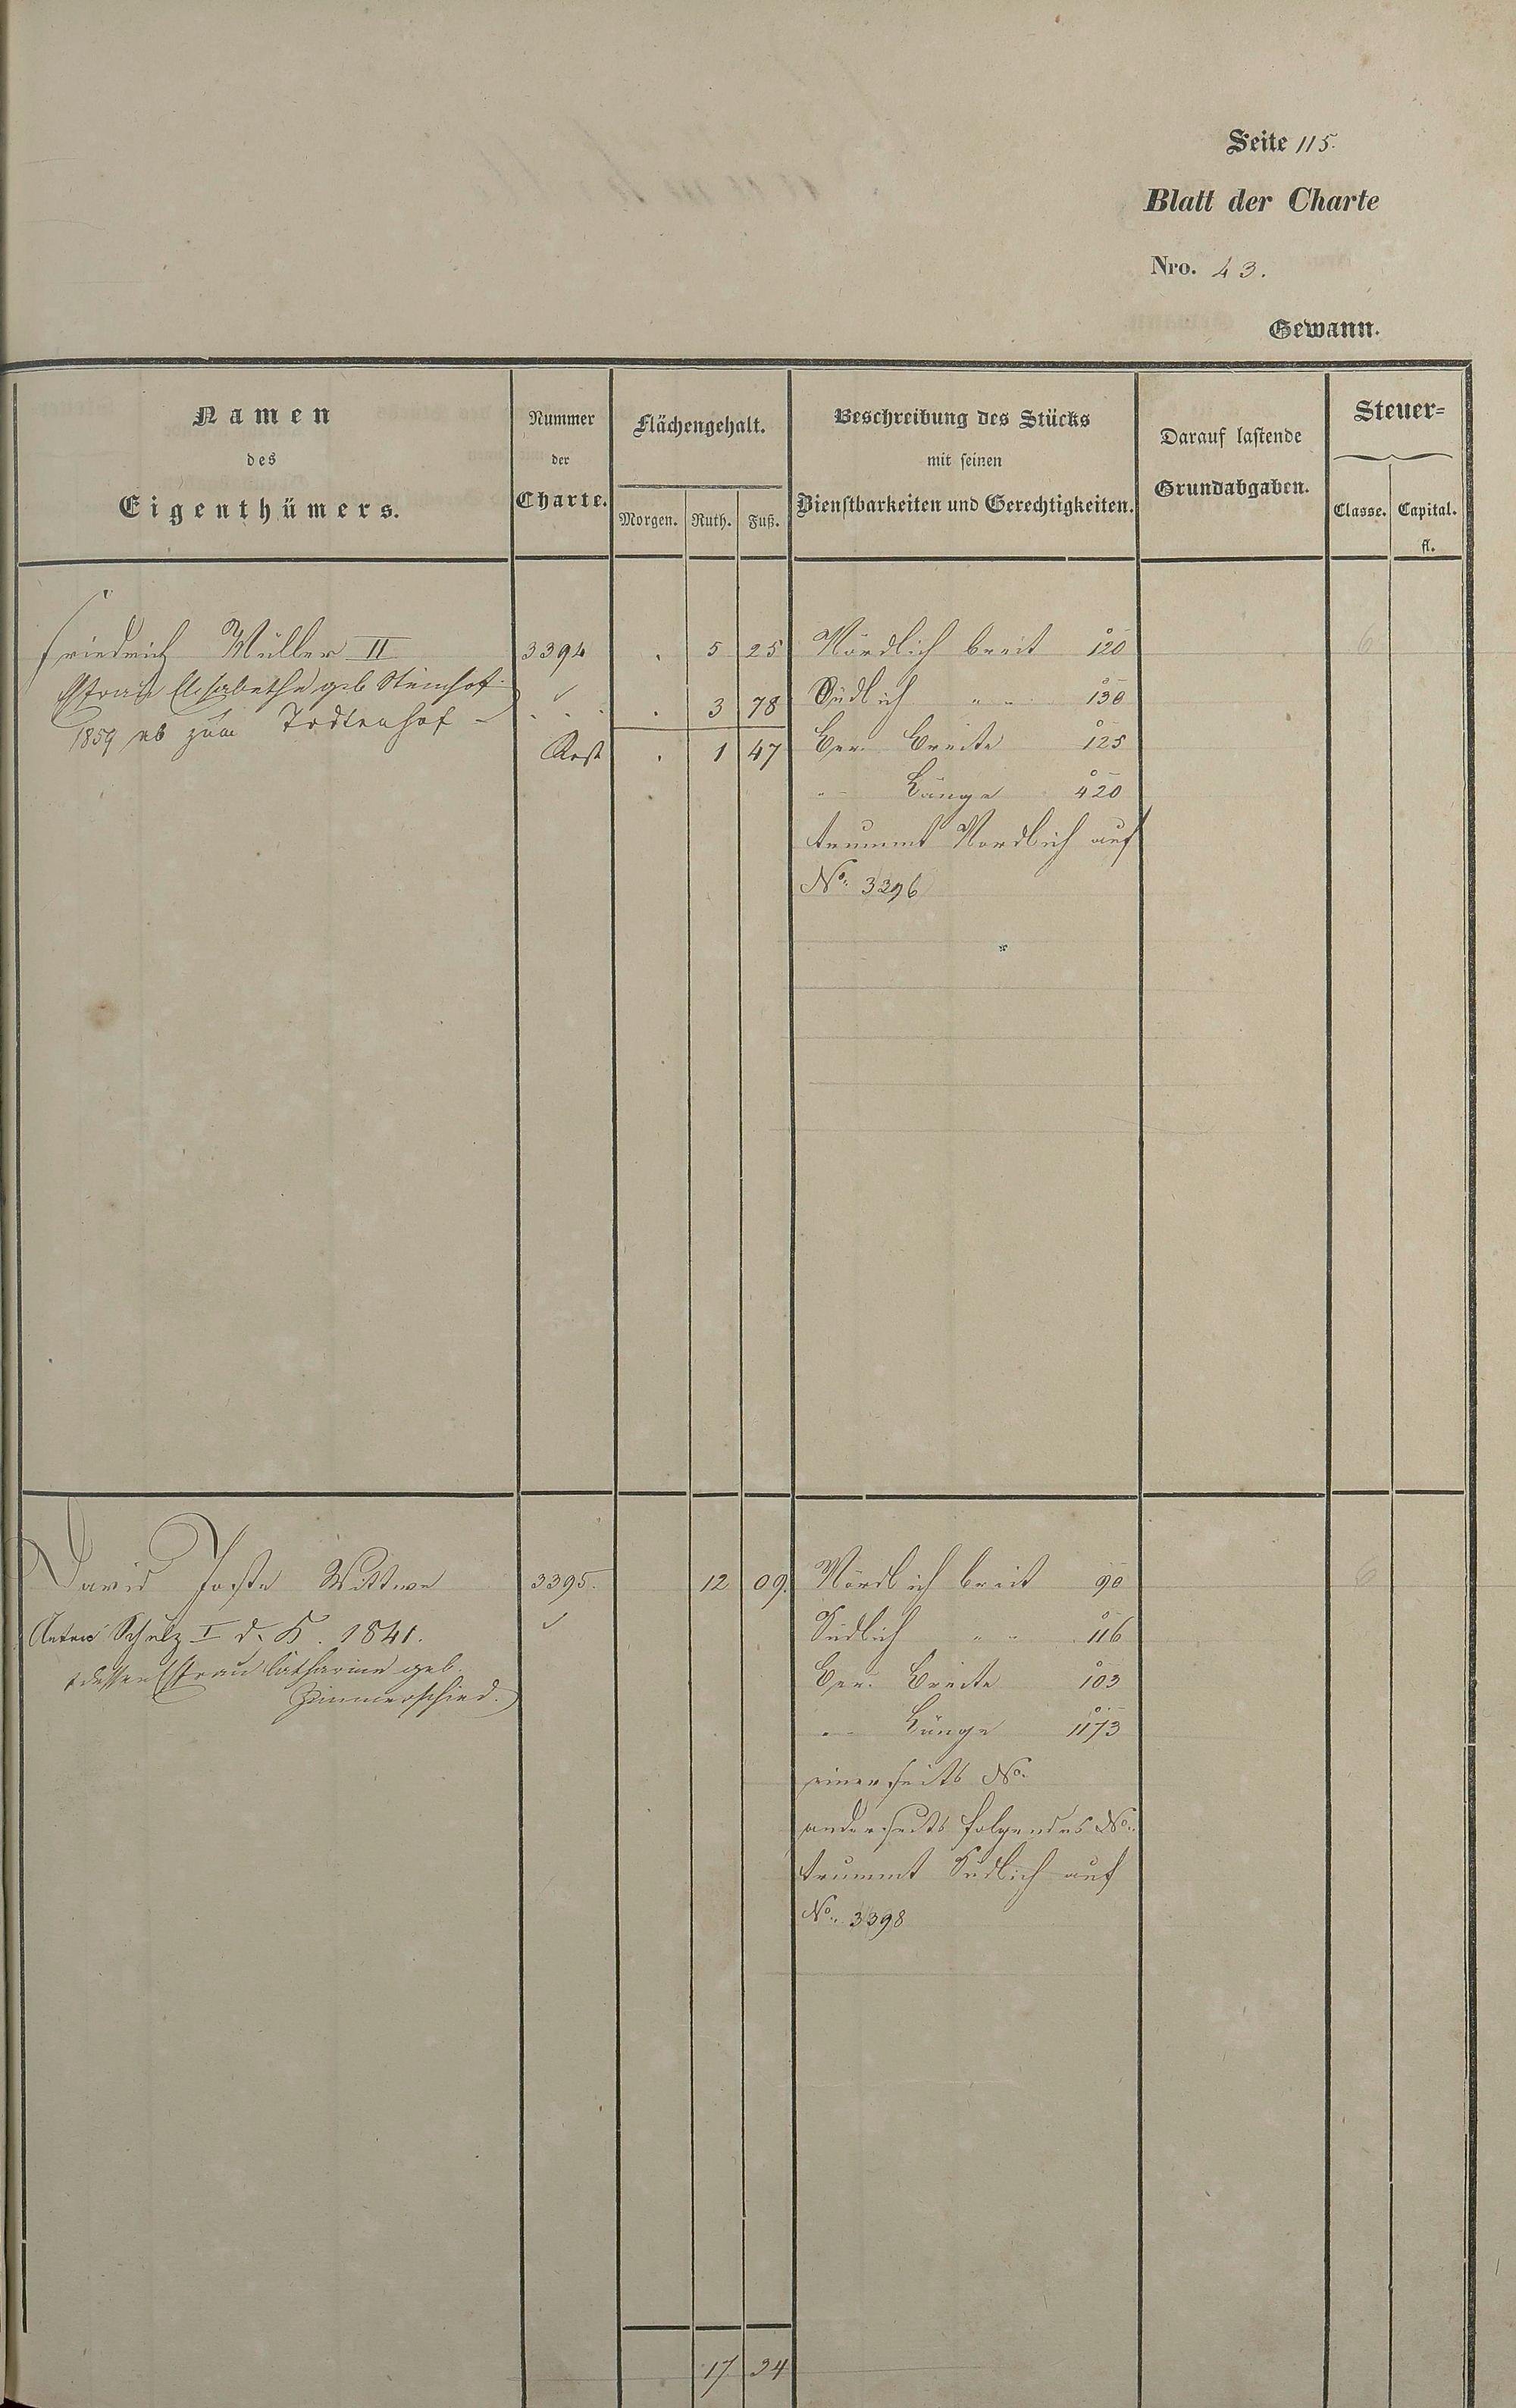 Seite 115.
Blatt der Charte
Nro. 43.
Gewann.
Namen
des
Eigenthümers.
Nummer
der
Charte.
Flächengehalt.
Morgen. Ruth. Fuß.
Beschreibung des Stücks
mit seinen
Dienstbarkeiten und Gerechtigkeiten.
Darauf lastende
Grundabgaben.
Steuer=
Classe. Capital.
fl.
Friedrich Müller II 3394 . 5 25 Nördlich breit 120 6
Elisabetha geb 3 78 Südlich " " 130
1859 ab zum Todtenhof -
Rest . 1 47 Ger. Breite 125
" Länge 420
trummt Nördlich auf
No. 3296
David Wittwe 3395. 12 09. Nördlich breit 90 6
Anton Schulz I d. K. 1841. Südlich " " 116
dessen Efrau Catharine geb. Ger. Breite 103
Zimmerschied. " Länge 1173
einerseits No.
anderseits folgendes No.
trummt Südlich auf
No. 3398
17 34